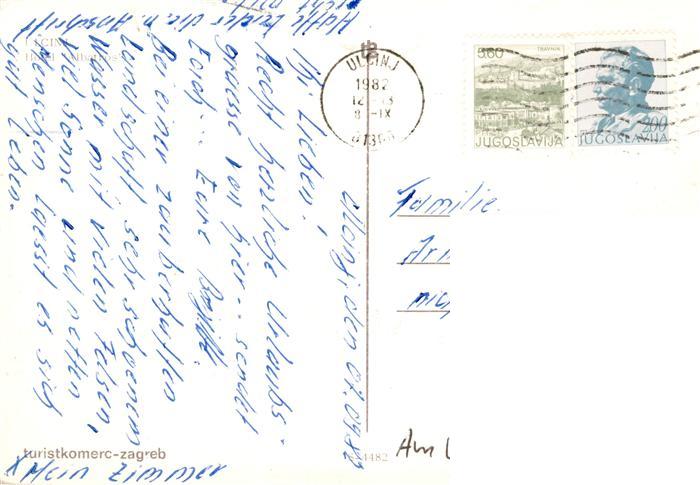 Ulcinj, den 07.09.82
Ihr Lieben,
Recht herzliche Urlaubs-
grüsse von hier.. sendet
Euch.. Eure Brigitte.
Bei einer zauberhaften
Landschaft, sehr schoenem
Wasser mit vielen Felsen,
viel Sonne und netten
Menschen laesst es sich
gut leben.
Hatte leider die n. Anschrift
nicht
x Mein Zimmer
ULCINJ
Hotel Albatros
turistkomerc-zagreb
4482
ULCINJ
1982
8-IX
5.60
TRAVNIK
JUGOSLAVIJA
2.00
JUGOSLAVIJA
Familie
Am